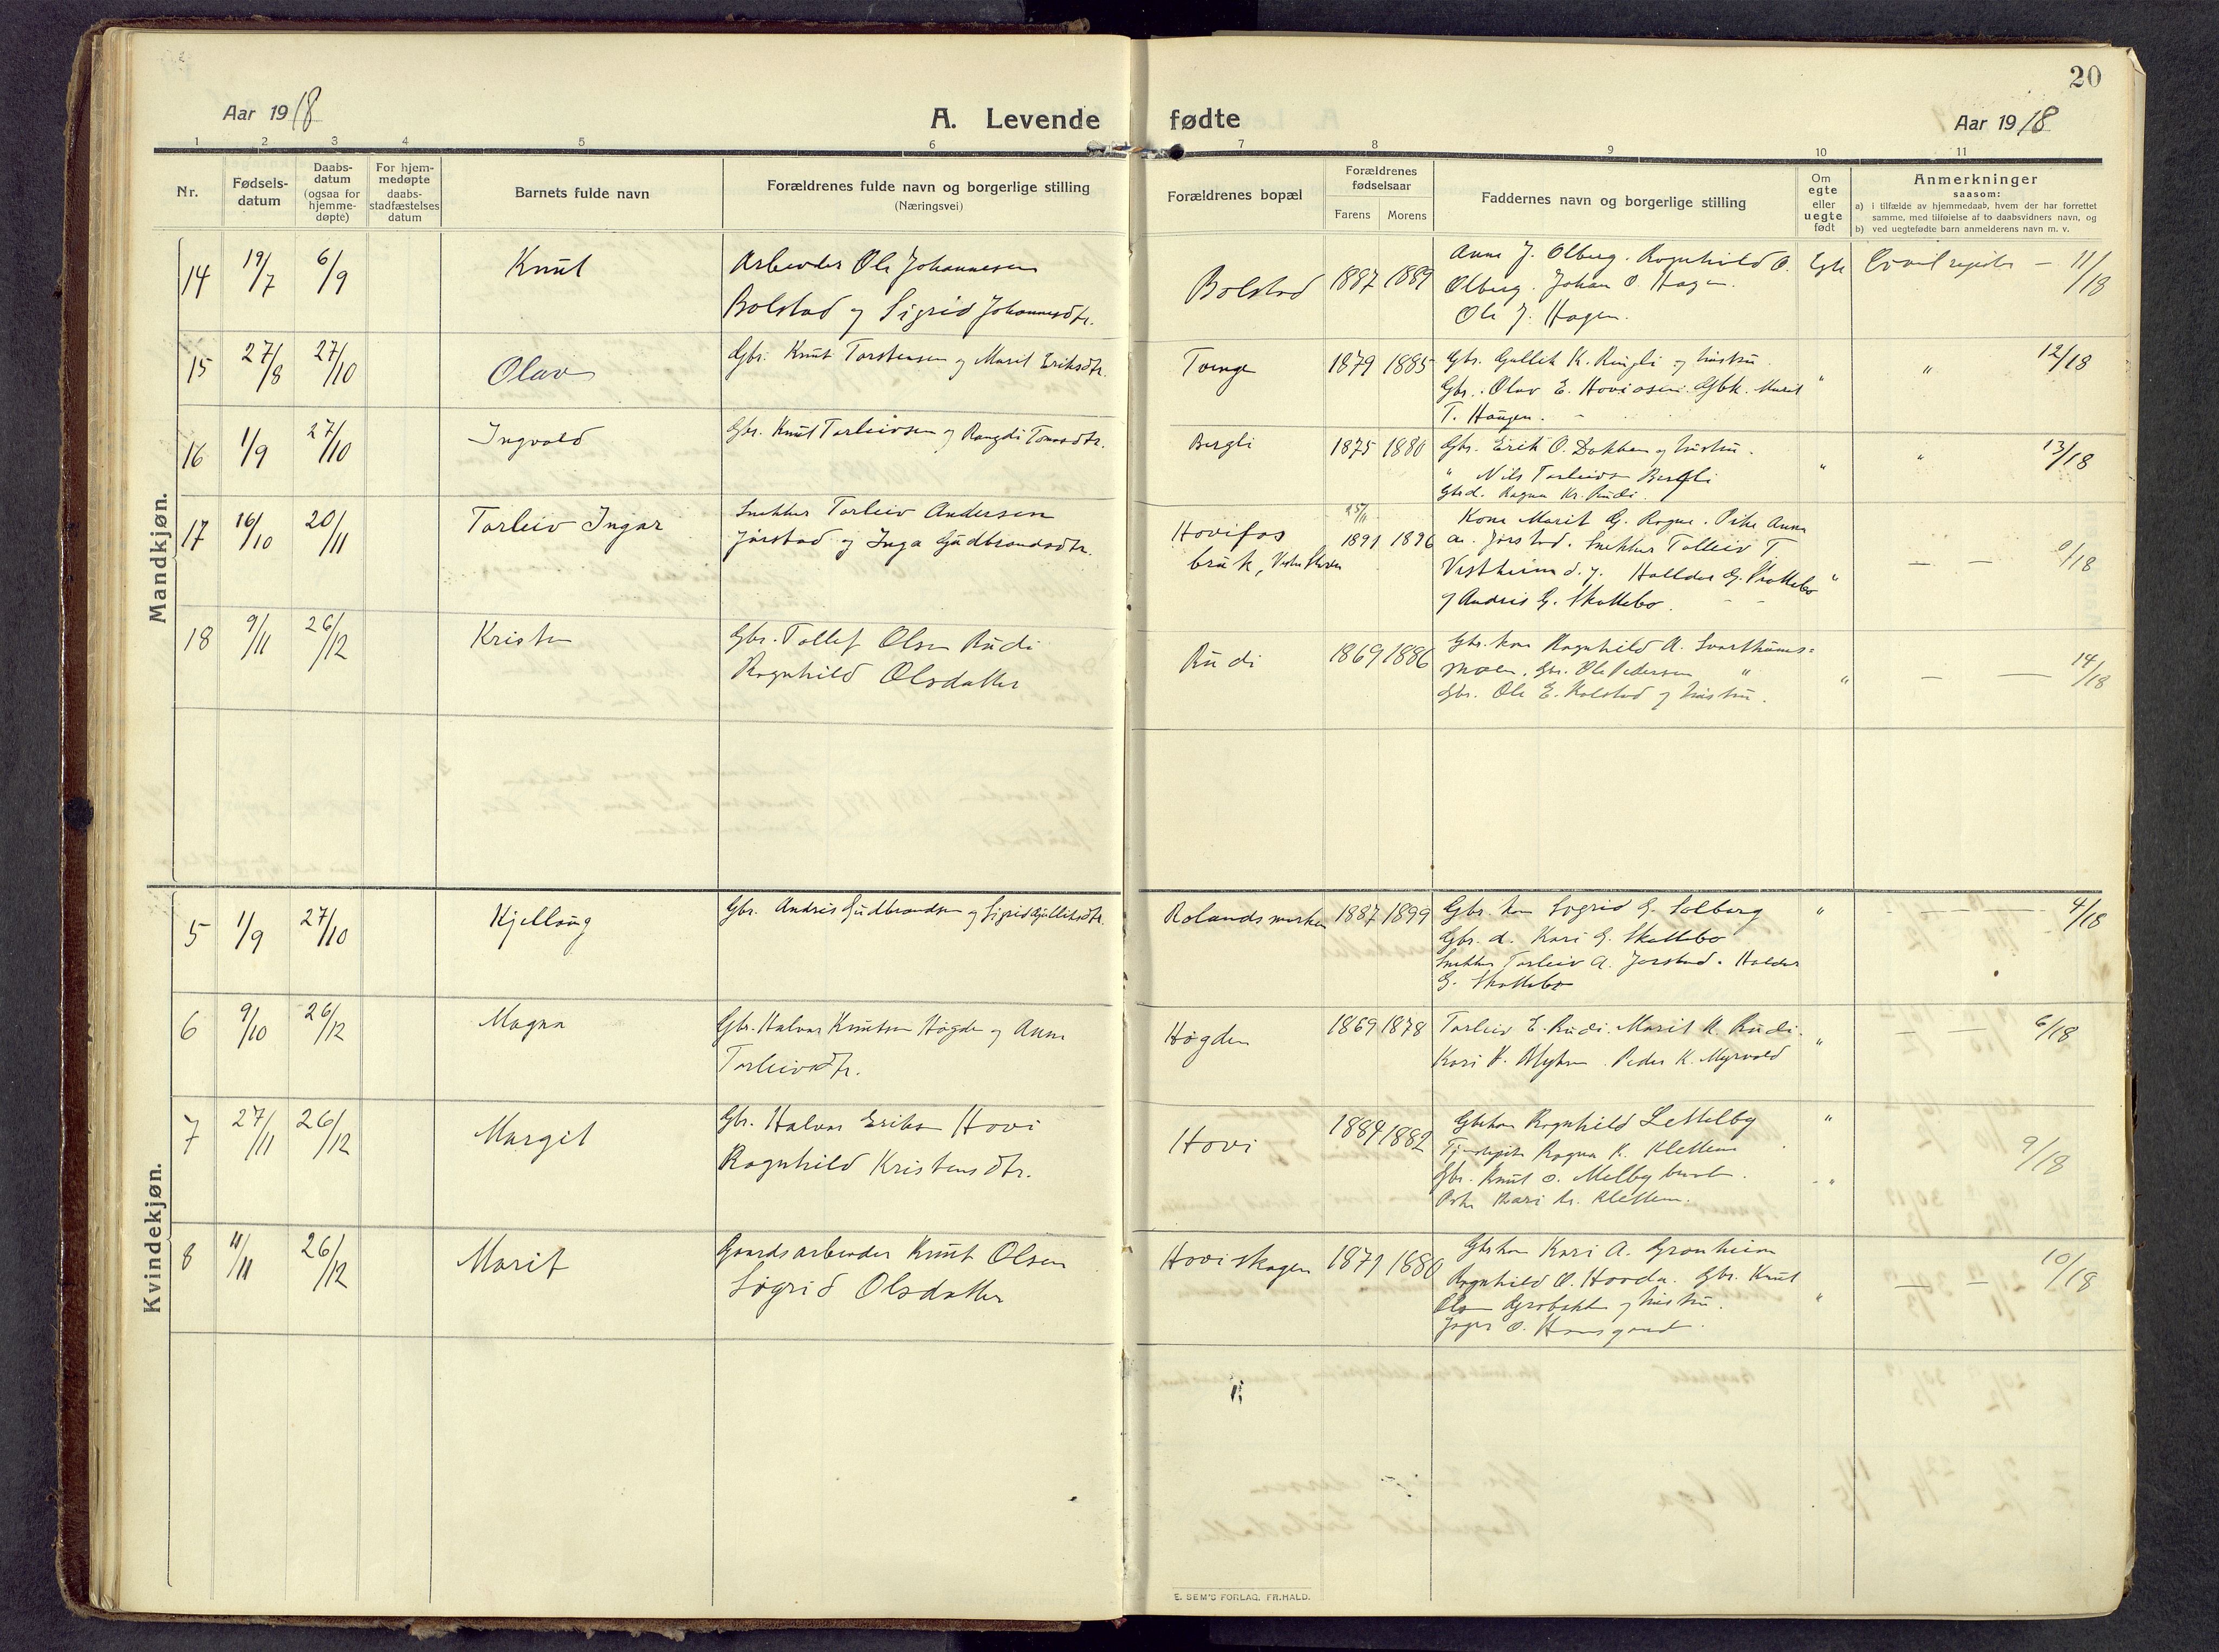 20
Aar 1918
A. Levende fødte
Aar 1918
1 2 3 4 5 6 7 8 9 10 11
Nr.
Fødsels-
datum
Daabs-
datum
(ogsaa for
hjemme-
døpte)
For hjem-
medøpte
daabs-
stadfæstelses
datum
Barnets fulde navn
Forældrenes fulde navn og borgerlige stilling
(Næringsvei)
Forældrenes bopæl
Forældrenes
fødselsaar
Farens Morens
Faddernes navn og borgerlige stilling
Om
egte
eller
uegte
født
Anmerkninger
saasom:
a) i tilfælde av hjemmedaab, hvem der har forrettet
samme, med tilføielse af to daabsvidners navn, og
b) ved uegtefødte barn anmelderens navn m. v.
Mandkjøn.
14 19/7 6/9 Knut
Arbeider Ole Johannesen
Bolstad og Sigrid Johannesdtr.
Bolstad 1887 1889
Anne J. Olberg. Ragnhild O.
Olberg. Johan O. Hagen.
Ole J. Hagen.
Egte
Civil register — 11/18
15 27/8 27/10 Olav
Gbr. Knut Torstensen og Marit Eriksdtr.
1879 1885
Gbr. Gullik K. Ringli og hustru.
Gbr. Olav E. Hoviosen. Gbk. Marit
T. Haugen.
" " 12/18
16 1/9 27/10 Ingvald
Gbr. Knut Torleivsen og Rangdi Tomasdtr.
Bergli 1875 1880
Gbr. Erik O. Dokken og hustru.
" Nils Torleivsn Bergli
Gbrd. Ragna Kr. Rudi.
" " 13/18
17 16/10 20/11 Torleiv Ingar
Snekker Torleiv Andersen
Jørstad og Inga Gudbrandsdtr.
Hovifos
bruk, Vestre Slidre
25/11
1891 1896
Kone Marit G. Rogne. Pike Anna
A. Jørstad. Snekker Tolleiv T.
Vestheim d.y. Halldor G. Skattebo
og Andris G. Skattebo.
" — — /18
18 9/11 26/12 Kristen
Gbr. Tollef Olsen Rudi
Ragnhild Olsdatter
Rudi 1869 1886
Gbr. kone Ragnhild A. Svarthums=
moen. Gbr. Ole Pedersen "
Gbr. Ole E. Kolstad og hustru.
" — — 14/18
Kvindekjøn.
5 1/9 27/10 Kjellaug
Gbr. Andris Gudbrandsen og Sigrid Gulliksdtr.
Rolandsmarken 1887 1899
Gbr. kone Sigrid G. Solberg
Gbr. d. Kari G. Skattebo
Snekker Torleiv A. Jørstad. Haldor
G. Skattebo
" — — 4/18
6 9/10 26/12 Magna
Gbr. Halvor Knutsen Høgde og Anne
Torleivsdtr.
Høgden 1869 1878
Torleiv E. Rudi. Marit K. Rudi.
Kari K. Myhre. Peder K. Myrvold
" — — 6/18
7 27/11 26/12 Margit
Gbr. Halvor Eriksen Hovi
Ragnhild Kristensdtr.
Hovi 1884 1882
Gbrkone Ragnhild Lettelby
Ragna K. Klettene
Gbr. Knut O. Melbybraaten.
Pike Kari Kr. Klettene.
" 9/18
8 11/11 26/12 Marit
Gaardsarbeider Knut Olsen
Sigrid Olsdatter
Hoviskogen 1871 1880
Gbrkone Kari A. Grønheim
Ragnhild O. Hovda. Gbr. Knut
Olsen og hustru.
" — — 10/18
E. SEM'S FORLAG. FR.HALD.